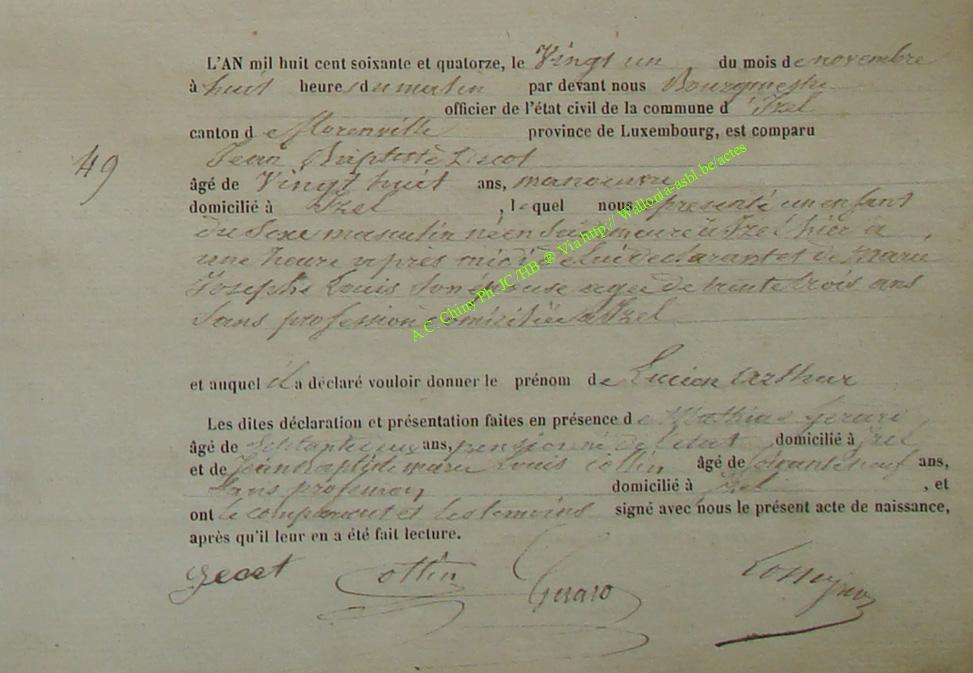 L'AN mil huit cent soixante et quatorze, le Vingt un du mois de novembre
à huit heures du matin par devant nous Bourgmestre
officier de l'état civil de la commune d'Izel
canton de Florenville province de Luxembourg, est comparu
49
Jean Baptiste
âgé de Vingt huit ans, manoeuvre
domicilié à Izel, lequel nous a présenté un enfant
du sexe masculin né en sa demeure à Izel hier à
une heure après midi de lui déclarant et de Marie
Josephe Louis son épouse agée de trente trois ans
Sans profession domiciliée à Izel
A.C. Chiny Ph. JC /HB @ Via http:// Wallonia-asbl.be/actes
et auquel il a déclaré vouloir donner le prénom de Lucien Arthur
Les dites déclaration et présentation faites en présence de Mathias Gerard
âgé de ans, pensionné de l'état domicilié à Izel
et de Jean Baptiste marie Louis Collin âgé de soixante neuf ans,
Sans profession domicilié à Izel, et
ont le comparant et les témoins signé avec nous le présent acte de naissance,
après qu'il leur en a été fait lecture.
Collin Gerard